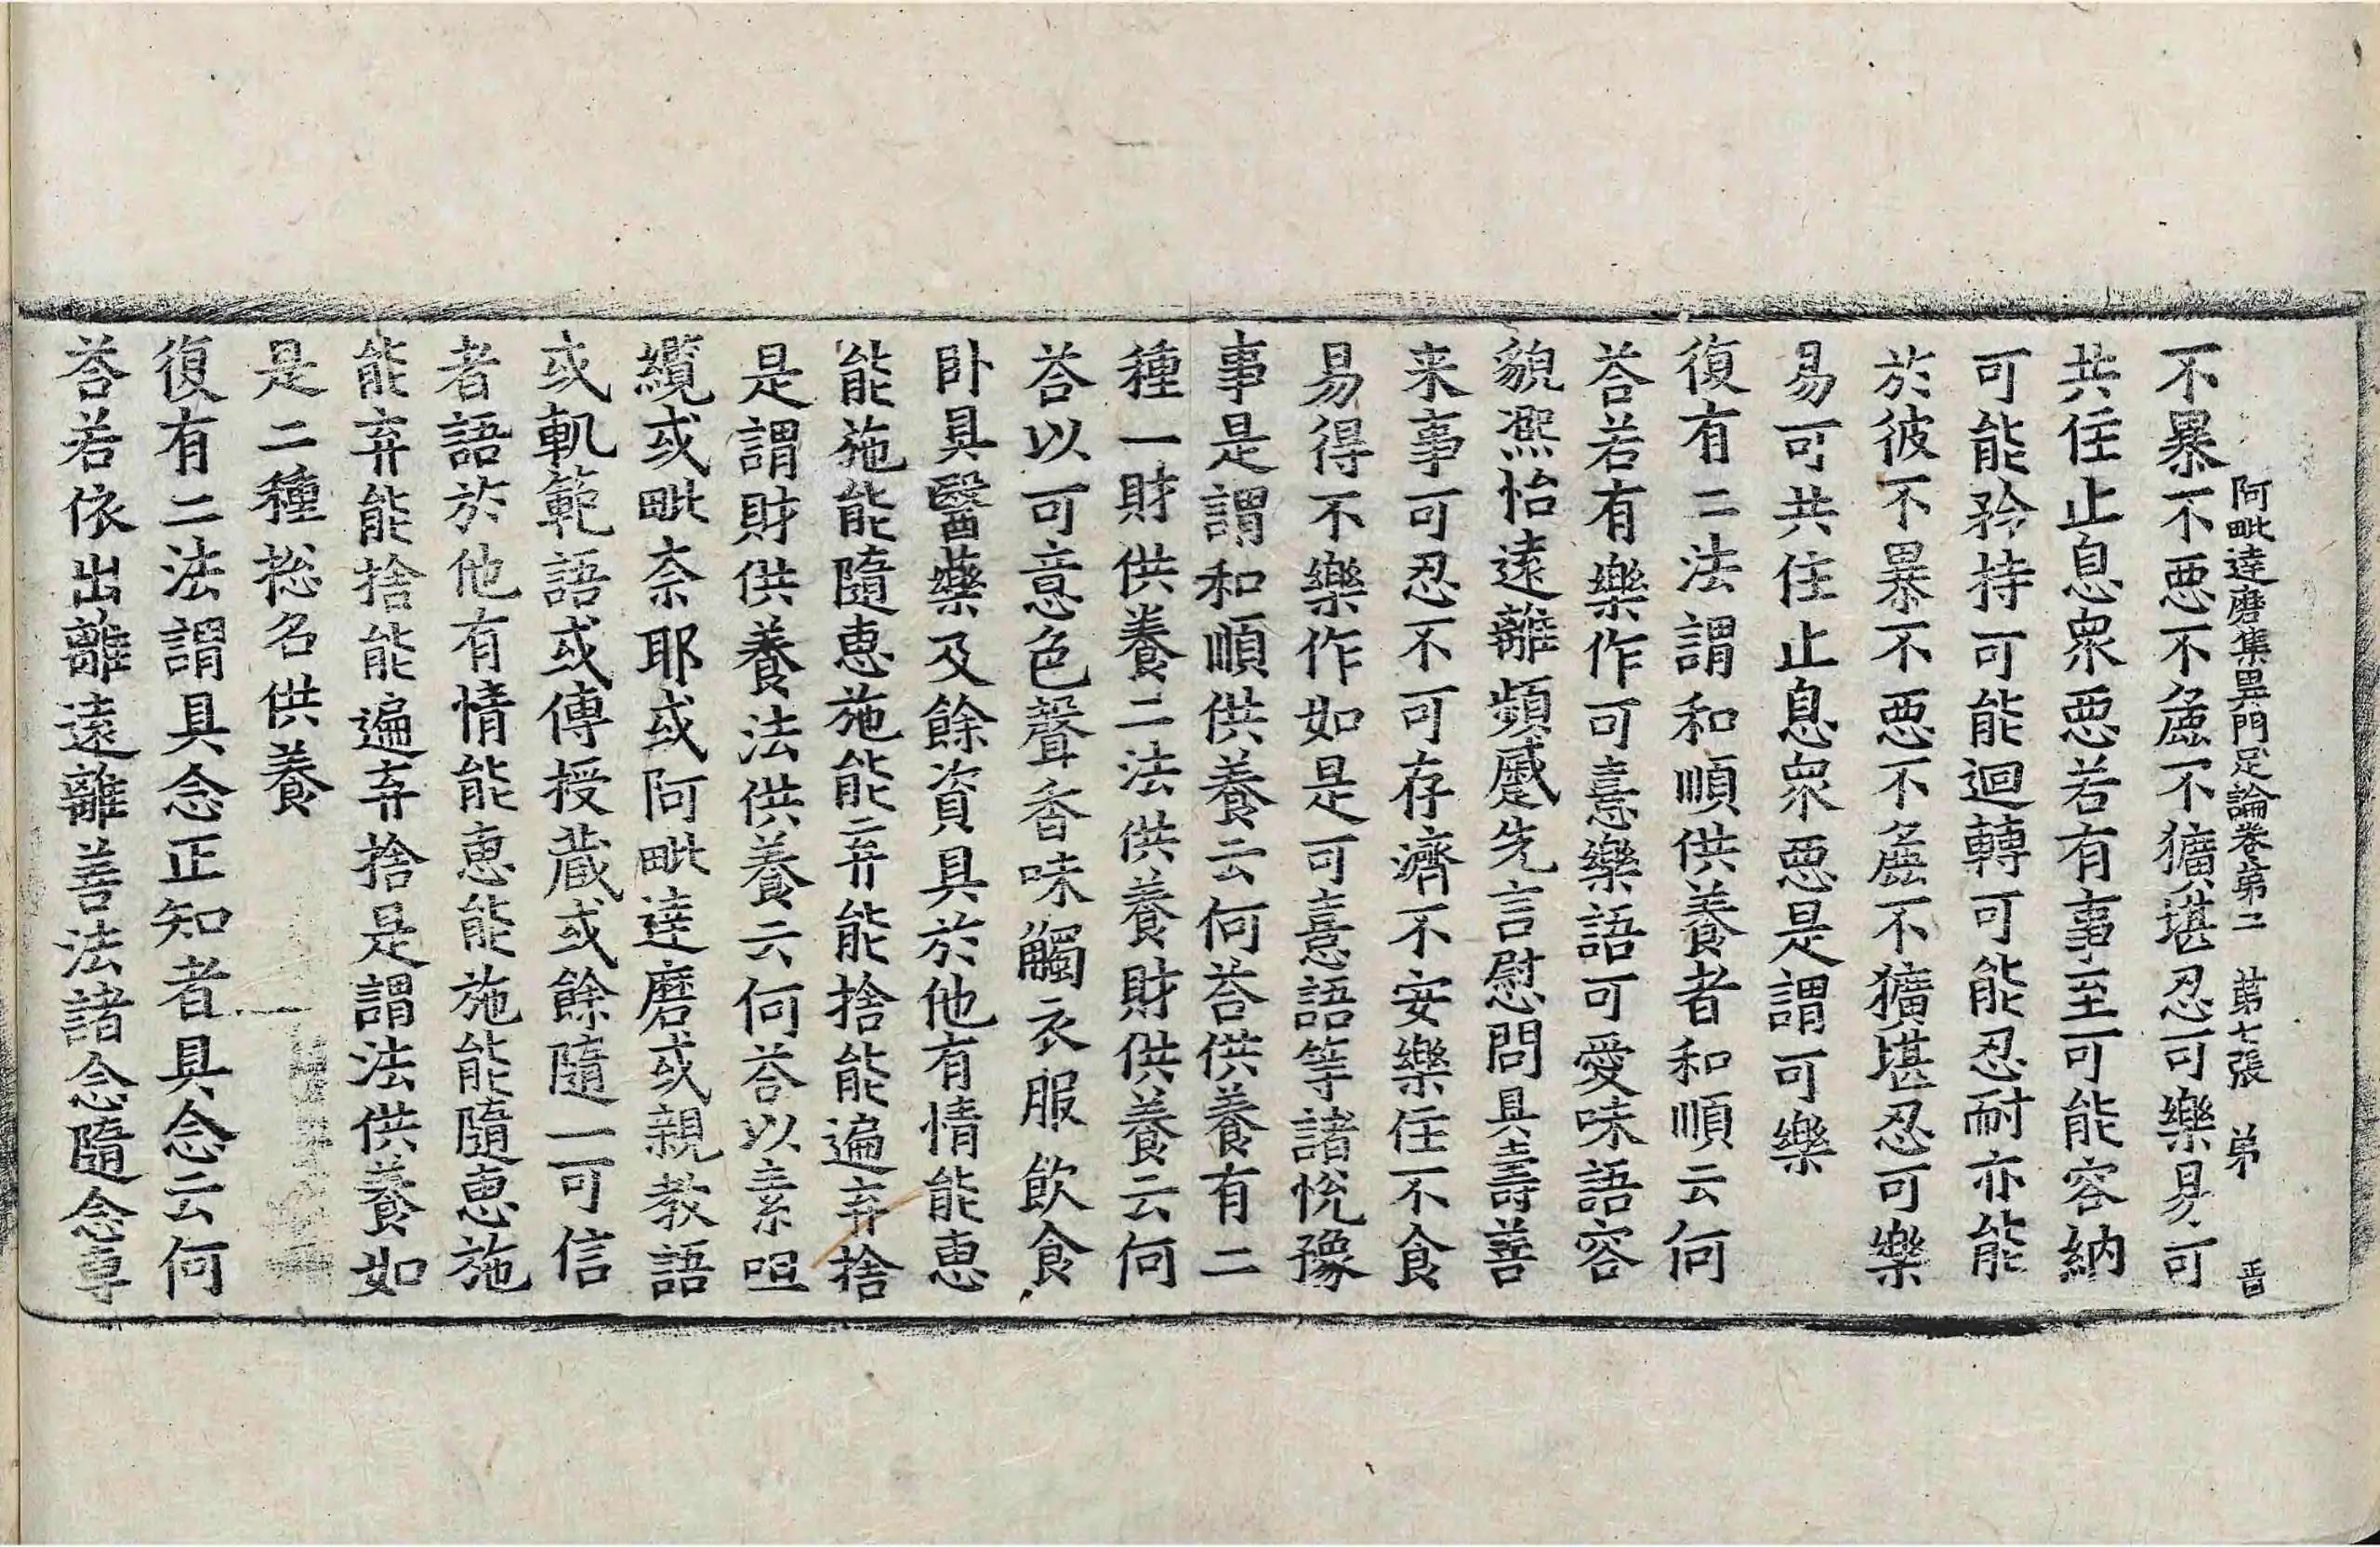 阿毗達磨集異門足論卷第二 第七張 弟 晋
不暴不惡不麁不獷堪忍可樂易可
共住止息衆惡若有事至可能容納
可能矜持可能迴轉可能忍耐亦能
於彼不暴不惡不麁不獷堪忍可樂
易可共住止息衆惡是謂可樂
復有二法謂和順供養者和順云何
荅若有樂作可憙樂語可愛味語容
貌凞怡遠離頻蹙先言慰問具壽善
来事可忍不可存濟不安樂住不食
易得不樂作如是可憙語等諸悅豫
事是謂和順供養云何荅供養有二
種一財供養二法供養財供養云何
荅以可意色聲香味觸衣服飲食
卧具醫藥及餘資具於他有情能恵
能施能隨恵施能弃能捨能遍弃捨
是謂財供養法供養云何荅以素呾
纜或毗奈耶或阿毗達磨或親教語
或軌範語或傳授藏或餘隨一可信
者語於他有情能恵能施能隨恵施
能弃能捨能遍弃捨是謂法供養如
是二種捴名供養
復有二法謂具念正知者具念云何
荅若依出離遠離善法諸念隨念專